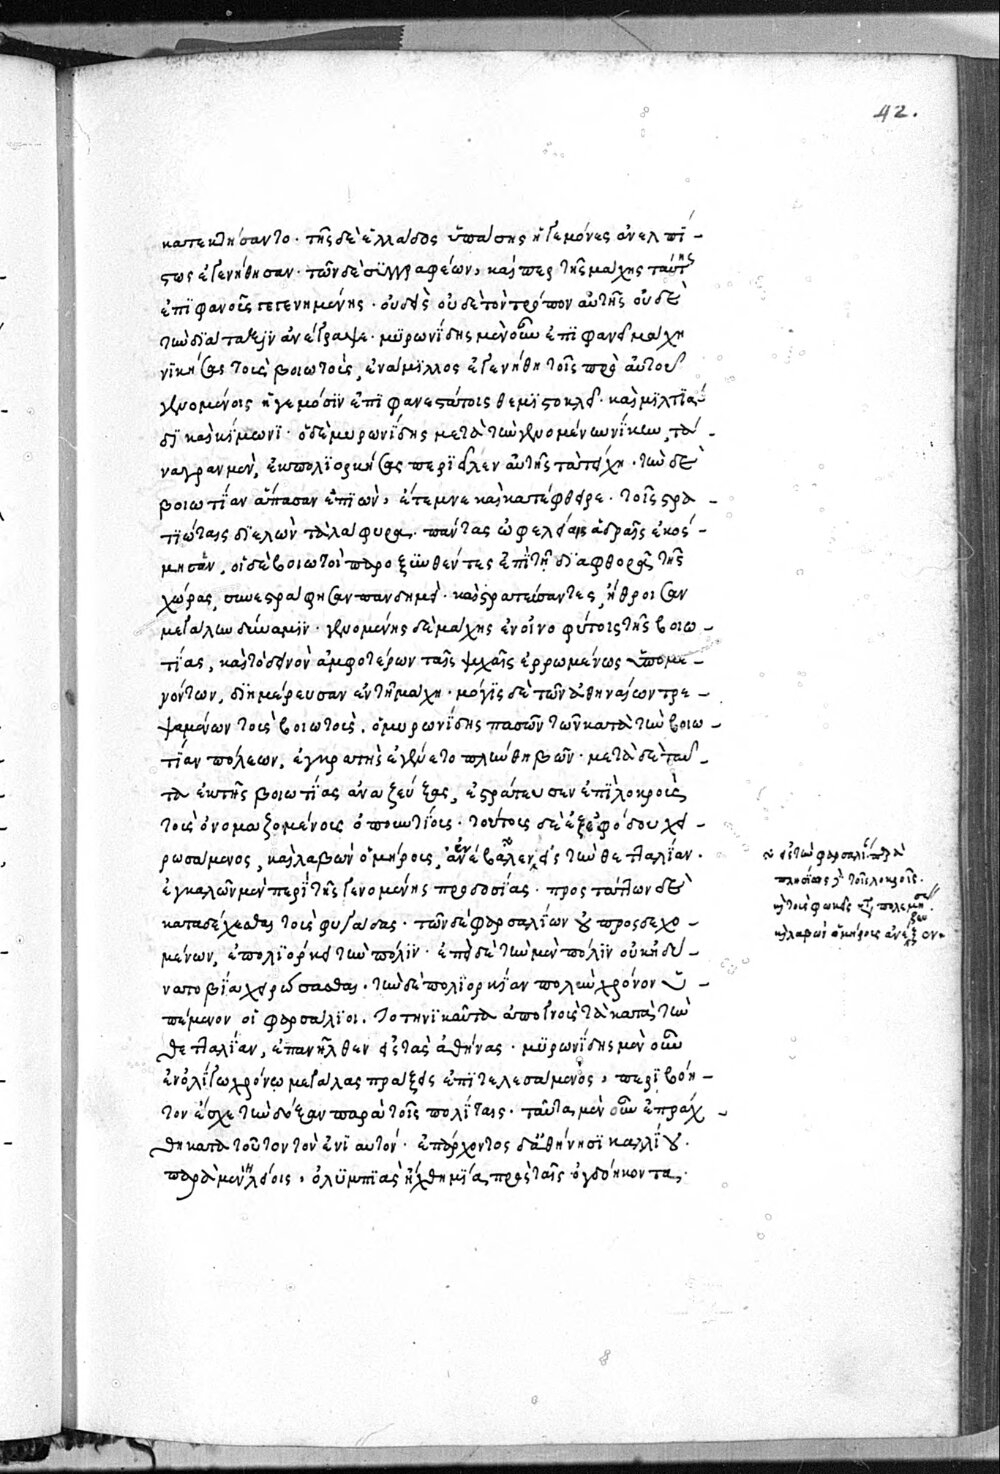 42.
κατεκτήσαντο· τῆς δὲ ἑλλάδος ὑπάσης ἡγεμόνες ἀνελπί-
στως ἐγενήθησαν· τῶν δὲ συγγραφέων, καίπερ τῆς μάχης ταύτης
ἐπιφανοῦς γεγενημένης· οὐδεὶς οὐδὲ τὸν τρόπον αὐτῆς οὐδὲ
τὴν διάταξιν ἀνέγραψε· μυρωνίδης μὲν οὖν ἐπιφανεῖ μάχη
νικήσας τοὺς βοιωτοὺς, ἐνάμιλλος ἐγενήθη τοῖς πρὸ αὐτοῦ
γενομένοις ἡγεμόσιν ἐπιφανεστάτοις θεμιστοκλεῖ· καὶ μιλτιά
δη καὶ κίμωνι· ὁ δὲ μυρωνίδης μετὰ τὴν γενομένην νίκην, τά-
ναγραν μὲν, ἐκπολιορκήσας περιεῖλεν αὐτῆς τὰ τείχη· τὴν δὲ
βοιωτίαν ἅπασαν ἐπιὼν, ἔτεμνε καὶ κατέφθειρε· τοῖς στρα-
τιώταις διελὼν τὰ λάφυρα· πάντας ὠφελείαις ἁδραῖς ἐκόσ-
μησαν, οἱ δὲ βοιωτοὶ παροξυνθέντες ἐπὶ τῆ διαφθορᾶ τῆς
χώρας, συνεστράφησαν πανδημεὶ· καὶ στρατεύσαντες, ἤθροισαν
μεγάλην δύναμιν· γενομένης δὲ μάχης ἐν οἰνοφύτοις τῆς βοιω-
τίας, καὶ τὸ δεινὸν ἀμφοτέρων ταῖς ψυχαῖς ἐρρωμένως ὑπομε-
νόντων, διημέρευσαν ἐν τῆ μάχη· μόγις δὲ τῶν ἀθηναίων τρε-
ψαμένων τοὺς βοιωτοὺς, ὁ μυρωνίδης πασῶν τῶν κατὰ τὴν βοιω-
τίαν πόλεων, ἐγκρατὴς ἐγένετο πλὴν θηβῶν· μετὰ δὲ ταῦ-
τα ἐκ τῆς βοιωτίας ἀναζεύξας, ἐστράτευσεν ἐπὶ λοκροὺς
τοὺς ὀνομαζομένους ὀπουντίους· τούτους δὲ ἐξ ἐφόδου χει-
ρωσάμενος, καὶ λαβὼν ὁμήρους, ἐνέβαλεν εἰς τὴν θετταλίαν·
ἐγκαλῶν μὲν περὶ τῆς γενομένης προδοσίας· προστάττων δὲ
καταδέχεσθαι τοὺς φυγάδας· τῶν δὲ φαρσαλίων οὐ προσδεχο-
μένων, ἐπολιόρκει τὴν πόλιν· ἐπεὶ δὲ τὴν μὲν πόλιν οὐκ ἠδύ-
νατο βία χειρώσασθαι· τὴν δὲ πολιορκίαν πολὺν χρόνον ὑ-
πέμενον οἱ φαρσάλιοι. τὸ τηνικαῦτα ἀπογνοὺς τὰ κατὰ τὴν
θετταλίαν, ἐπανῆλθεν εἰς τὰς ἀθήνας· μυρωνίδης μὲν οὖν
ἐν ὀλίγω χρόνω μεγάλας πράξεις ἐπιτελεσάμενος, περιβόη-
τον ἔσχε τὴν δόξαν παρὰ τοῖς πολίταις· ταῦτα μὲν οὖν ἐπράχ-
θη κατὰ τοῦτον τὸν ἐνιαυτόν· ἐπ' ἄρχοντος δ' ἀθήνησι καλλίου·
παρὰ μὲν ἠλείοις, ὀλυμπιὰς ἤχθη μία πρὸς ταῖς ὀγδοήκοντα,
εἰς τὴν φαρσαλίαν
πλησίως τοῖς λοκροῖς·
καὶ τοὺς φωκεῖς
καὶ λαβὼν ὁμήρους